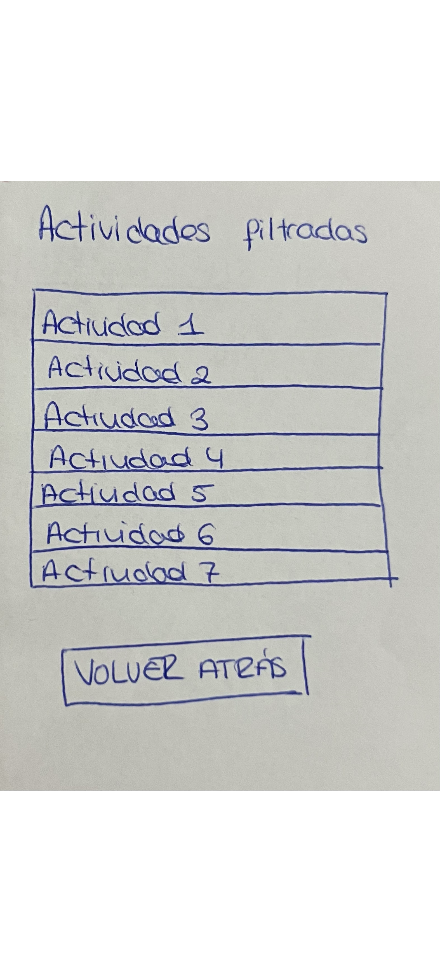 Actividades filtradas
Actividad 1
Actividad 2
Actividad 3
Actividad 4
Actividad 5
Actividad 6
Actividad 7
VOLVER ATRÁS